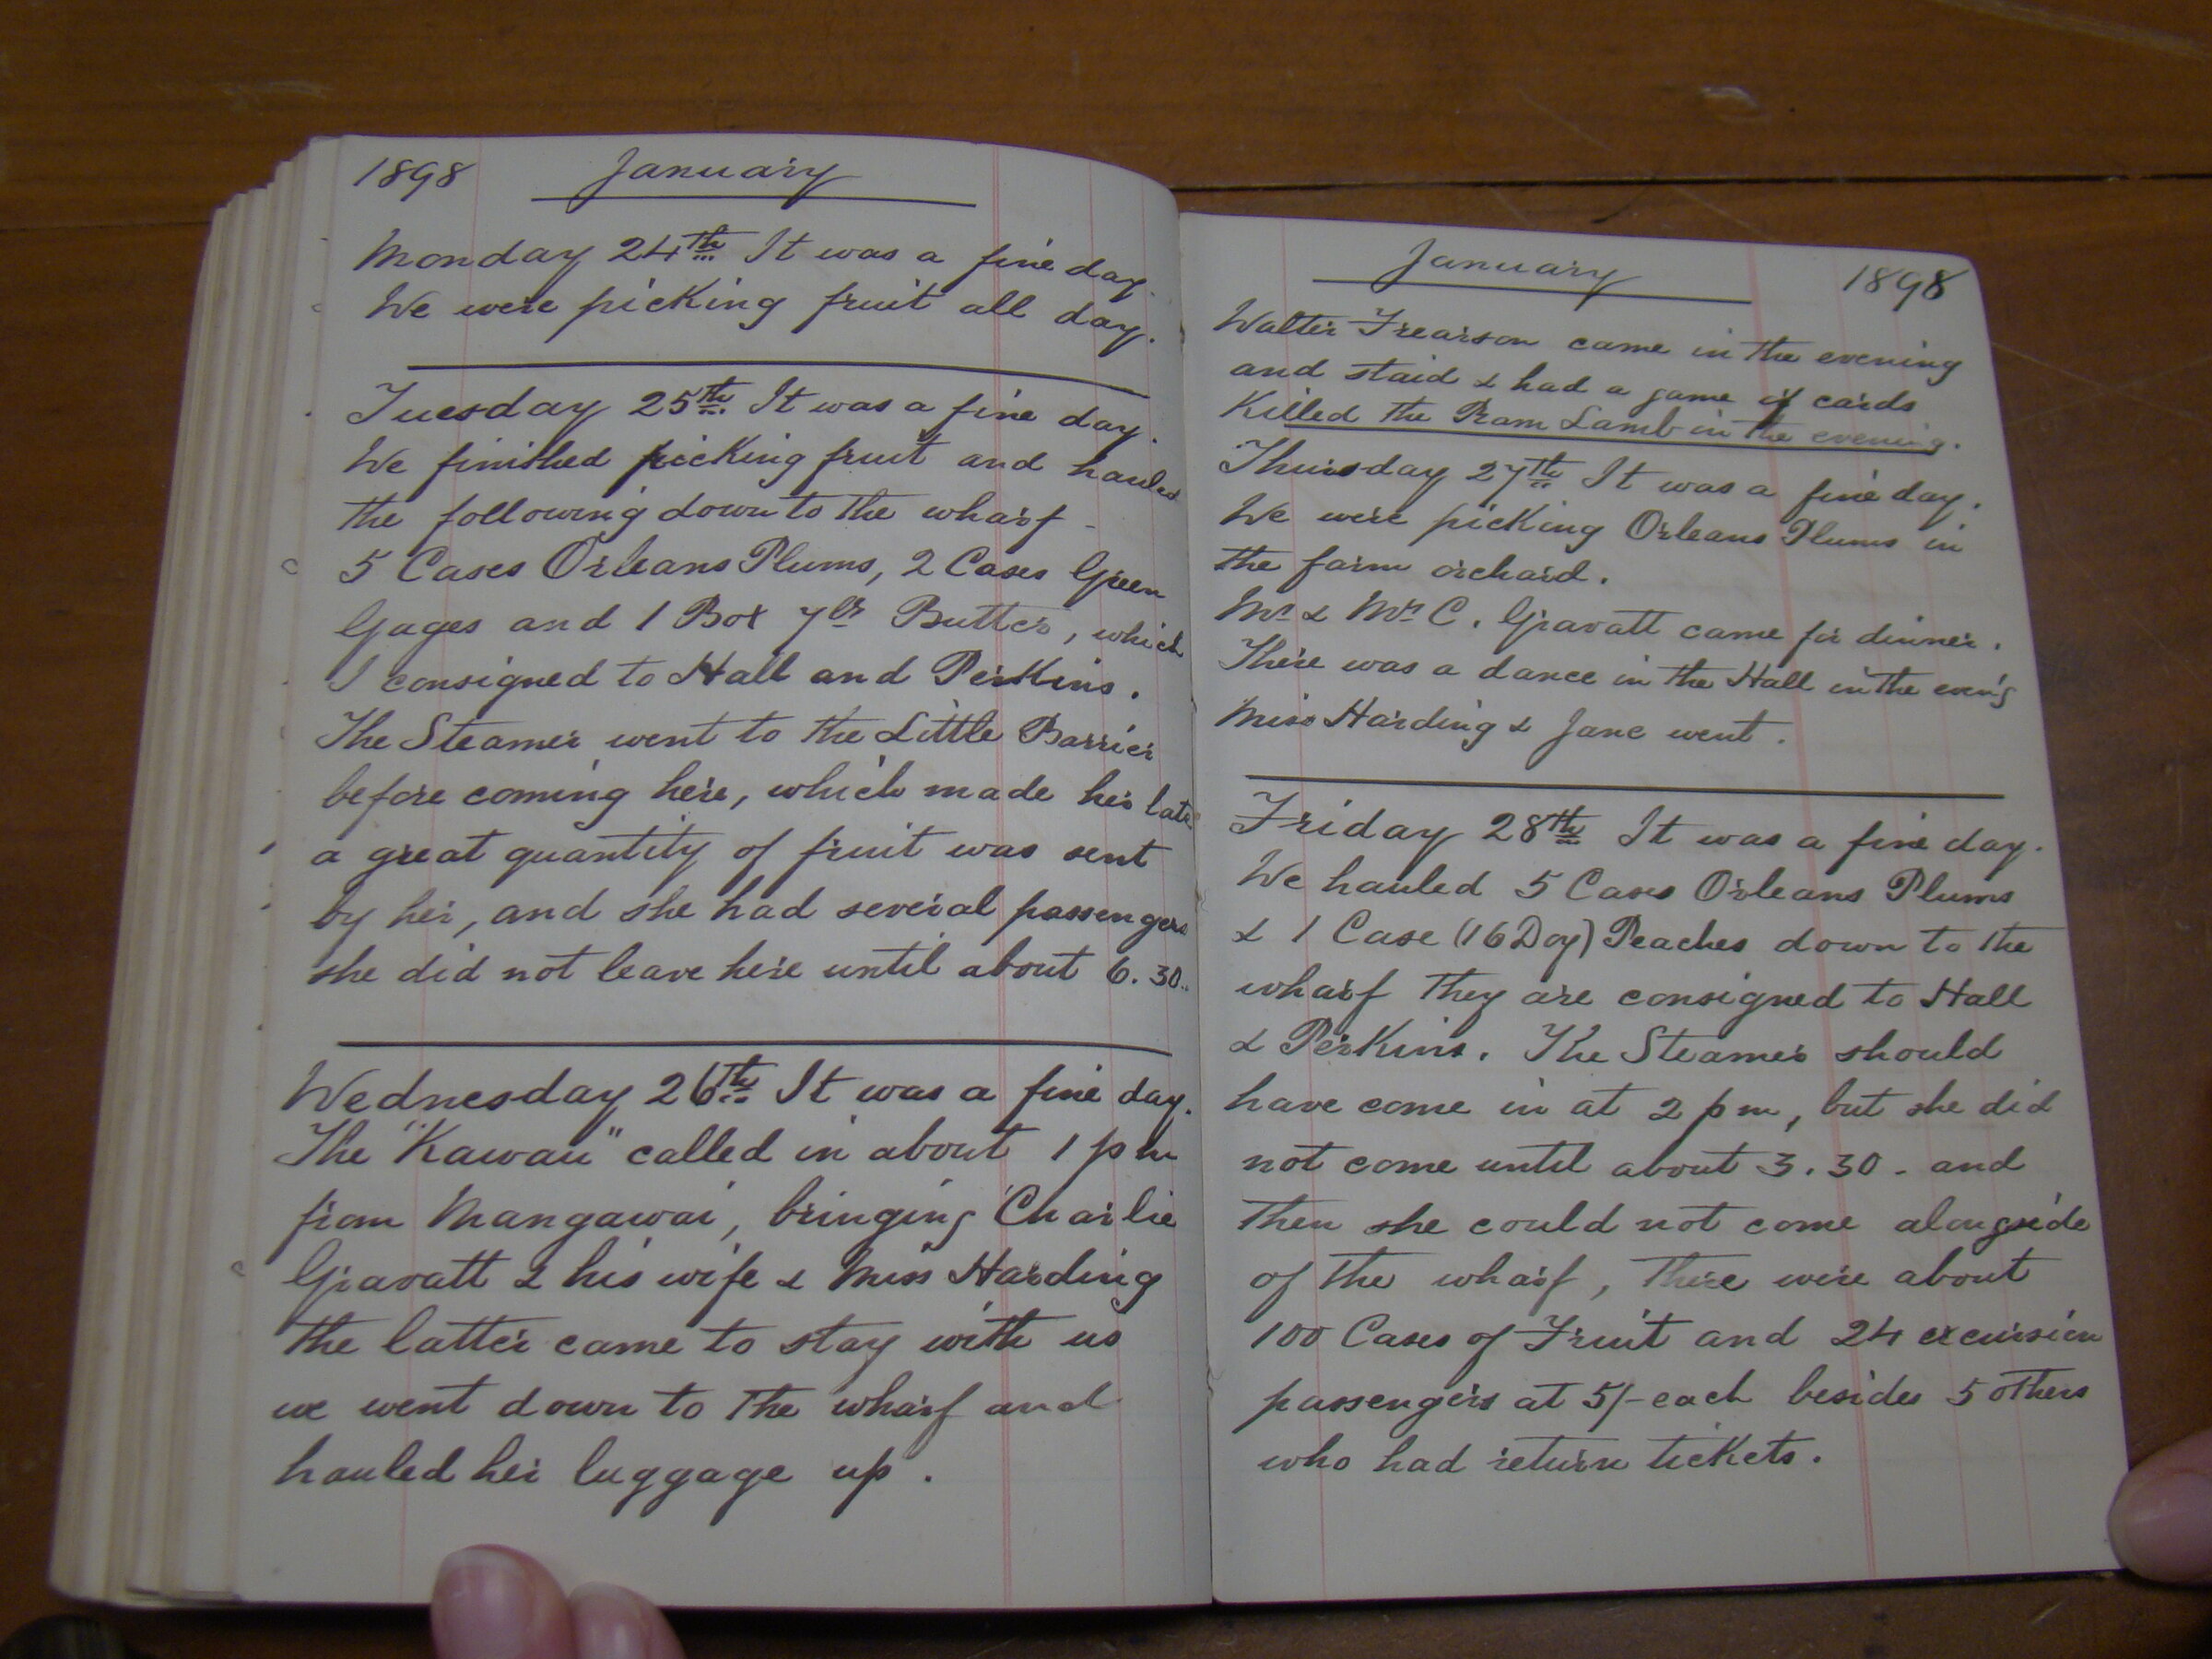 1898 January
Monday 24th It was a fine day.
We were picking fruit all day.
Tuesday 25th It was a fine day.
We finished picking fruit and hauled
the following down to the wharf -
5 Cases Orleans Plums, 2 Cases Green
Gages and 1 Box 7lbs Butter, which
I consigned to Hall and Perkins.
The Steamer went to the Little Barrier
before coming here, which made her late
a great quantity of fruit was sent
by her, and she had several passengers
she did not leave here until about 6.30.
Wednesday 26th It was a fine day.
The "Kawau" called in about 1 pm
from Mangawai, bringing Charlie
Gravatt & his wife & Miss Harding
the latter came to stay with us
we went down to the wharf and
hauled her luggage up.
January 1898
Walter Frearson came in the evening
and staid & had a game of cards
Killed the Ram Lamb in the evening.
Thursday 27th It was a fine day.
We were picking Orleans Plums in
the farm orchard.
Mr & Mrs C. Gravatt came for dinner.
There was a dance in the Hall in the even'g
Miss Harding & Jane went.
Friday 28th It was a fine day.
We hauled 5 Cases Orleans Plums
& 1 Case (16 Doz) Peaches down to the
wharf they are consigned to Hall
& Perkins. The Steamer should
have come in at 2 pm, but she did
not come until about 3.30 - and
then she could not come alongside
of the wharf, there were about
100 Cases of Fruit and 24 excursion
passengers at 5/- each besides 5 others
who had return tickets.